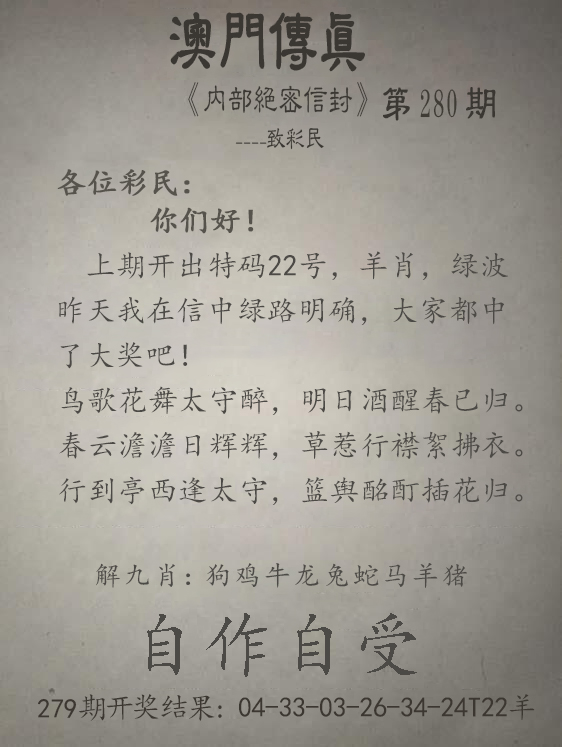 澳門傳眞
《内部絕密信封》第280期
----致彩民
各位彩民：
你们好！
上期开出特码22号，羊肖，绿波
昨天我在信中绿路明确，大家都中
了大奖吧！
鸟歌花舞太守醉，明日酒醒春已归。
春云澹澹日辉辉，草惹行襟絮拂衣。
行到亭西逢太守，篮舆酩酊插花归。
解九肖：狗鸡牛龙兔蛇马羊猪
自作自受
279期开奖结果：04-33-03-26-34-24T22羊